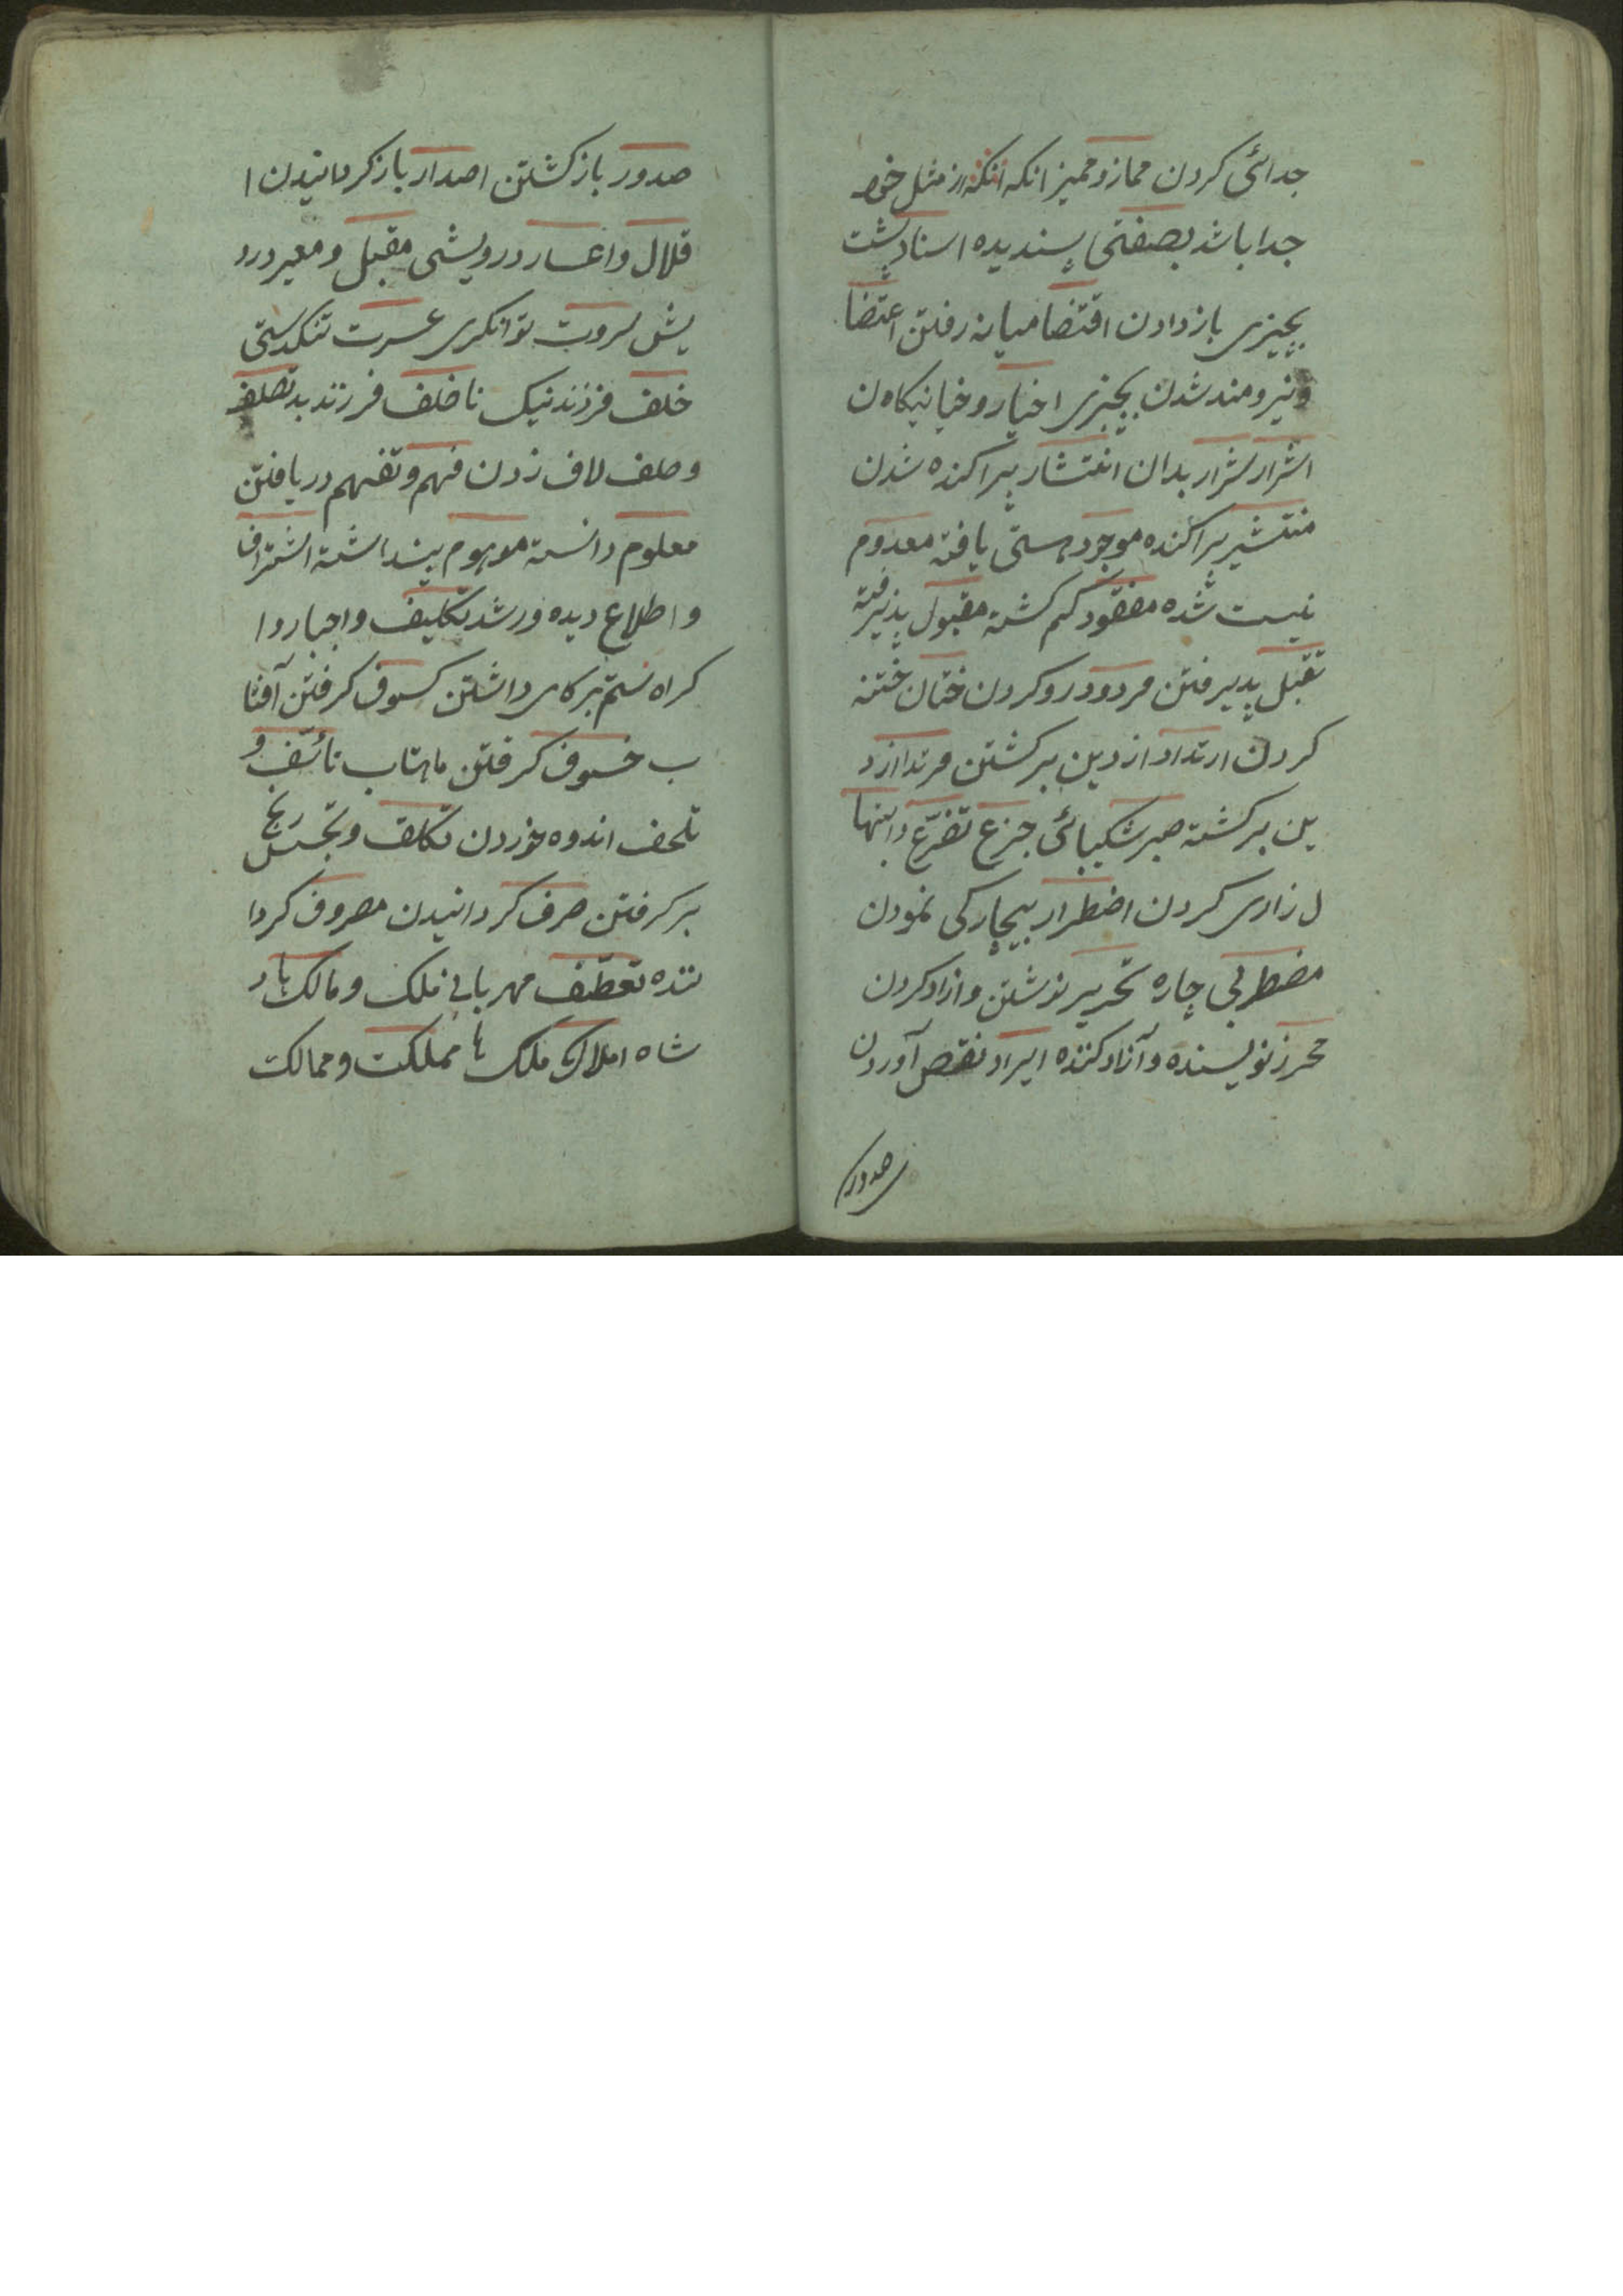 جدائی کردن مماز و ممیز انکه انکه از مثل خود
جدا باشد بصفتی پسندیده اسناد پشت
بچیزی باز دادن اقتضا میانه رفتن اعتضا
و نیرومند شدن بچیزی اخیار و خیا نیکاه ن
اشرار شرار بدان انتشار پراکنده شدن
منتشیر پراکنده موجود هستی یافته معدوم
نیست شده مفقود کم کشته مقبول پذیرفته
تقبل پذیرفتن مردود رو کردن ختان ختنه
کردن ارتداد از دین برکشتن مرتد از د
ین برکشته صبر شکیبائی جزع تضرع و ابتها
ل زاری کردن اضطرار بیچارکی نمودن
مضطر بی چاره تحریر نوشتن و ازاد کردن
محرر نویسنده و آزاد کننده ایراد نقص آوردن
صدور
صدور باز کشتن اصدار باز کردانیدن ا
قلال و اعسار درویشی مقبل و معیر درو
یش ثروت توانکری عسرت تنکدستی
خلف فرزند نیک ناخلف فرزند بد تصلف
و صلف لاف زدن فهم و تفهم دریافتن
معلوم دانسته موهوم پنداشته اشتراف
و اطلاع دیده ور شد تکلیف و اجبار دا
کراه ستم بر کاری داشتن کسوف کرفتن آفتا
ب خسوف کرفتن ماهتاب تائسف و
تلحف اندوه خوردن تکلف و تجسس رنج
بر کرفتن صرف کردانیدن مصروف کردا
ننده تعطف مهربانی ملک و مالک باد
شاه املاک ملک ها مملکت و ممالک